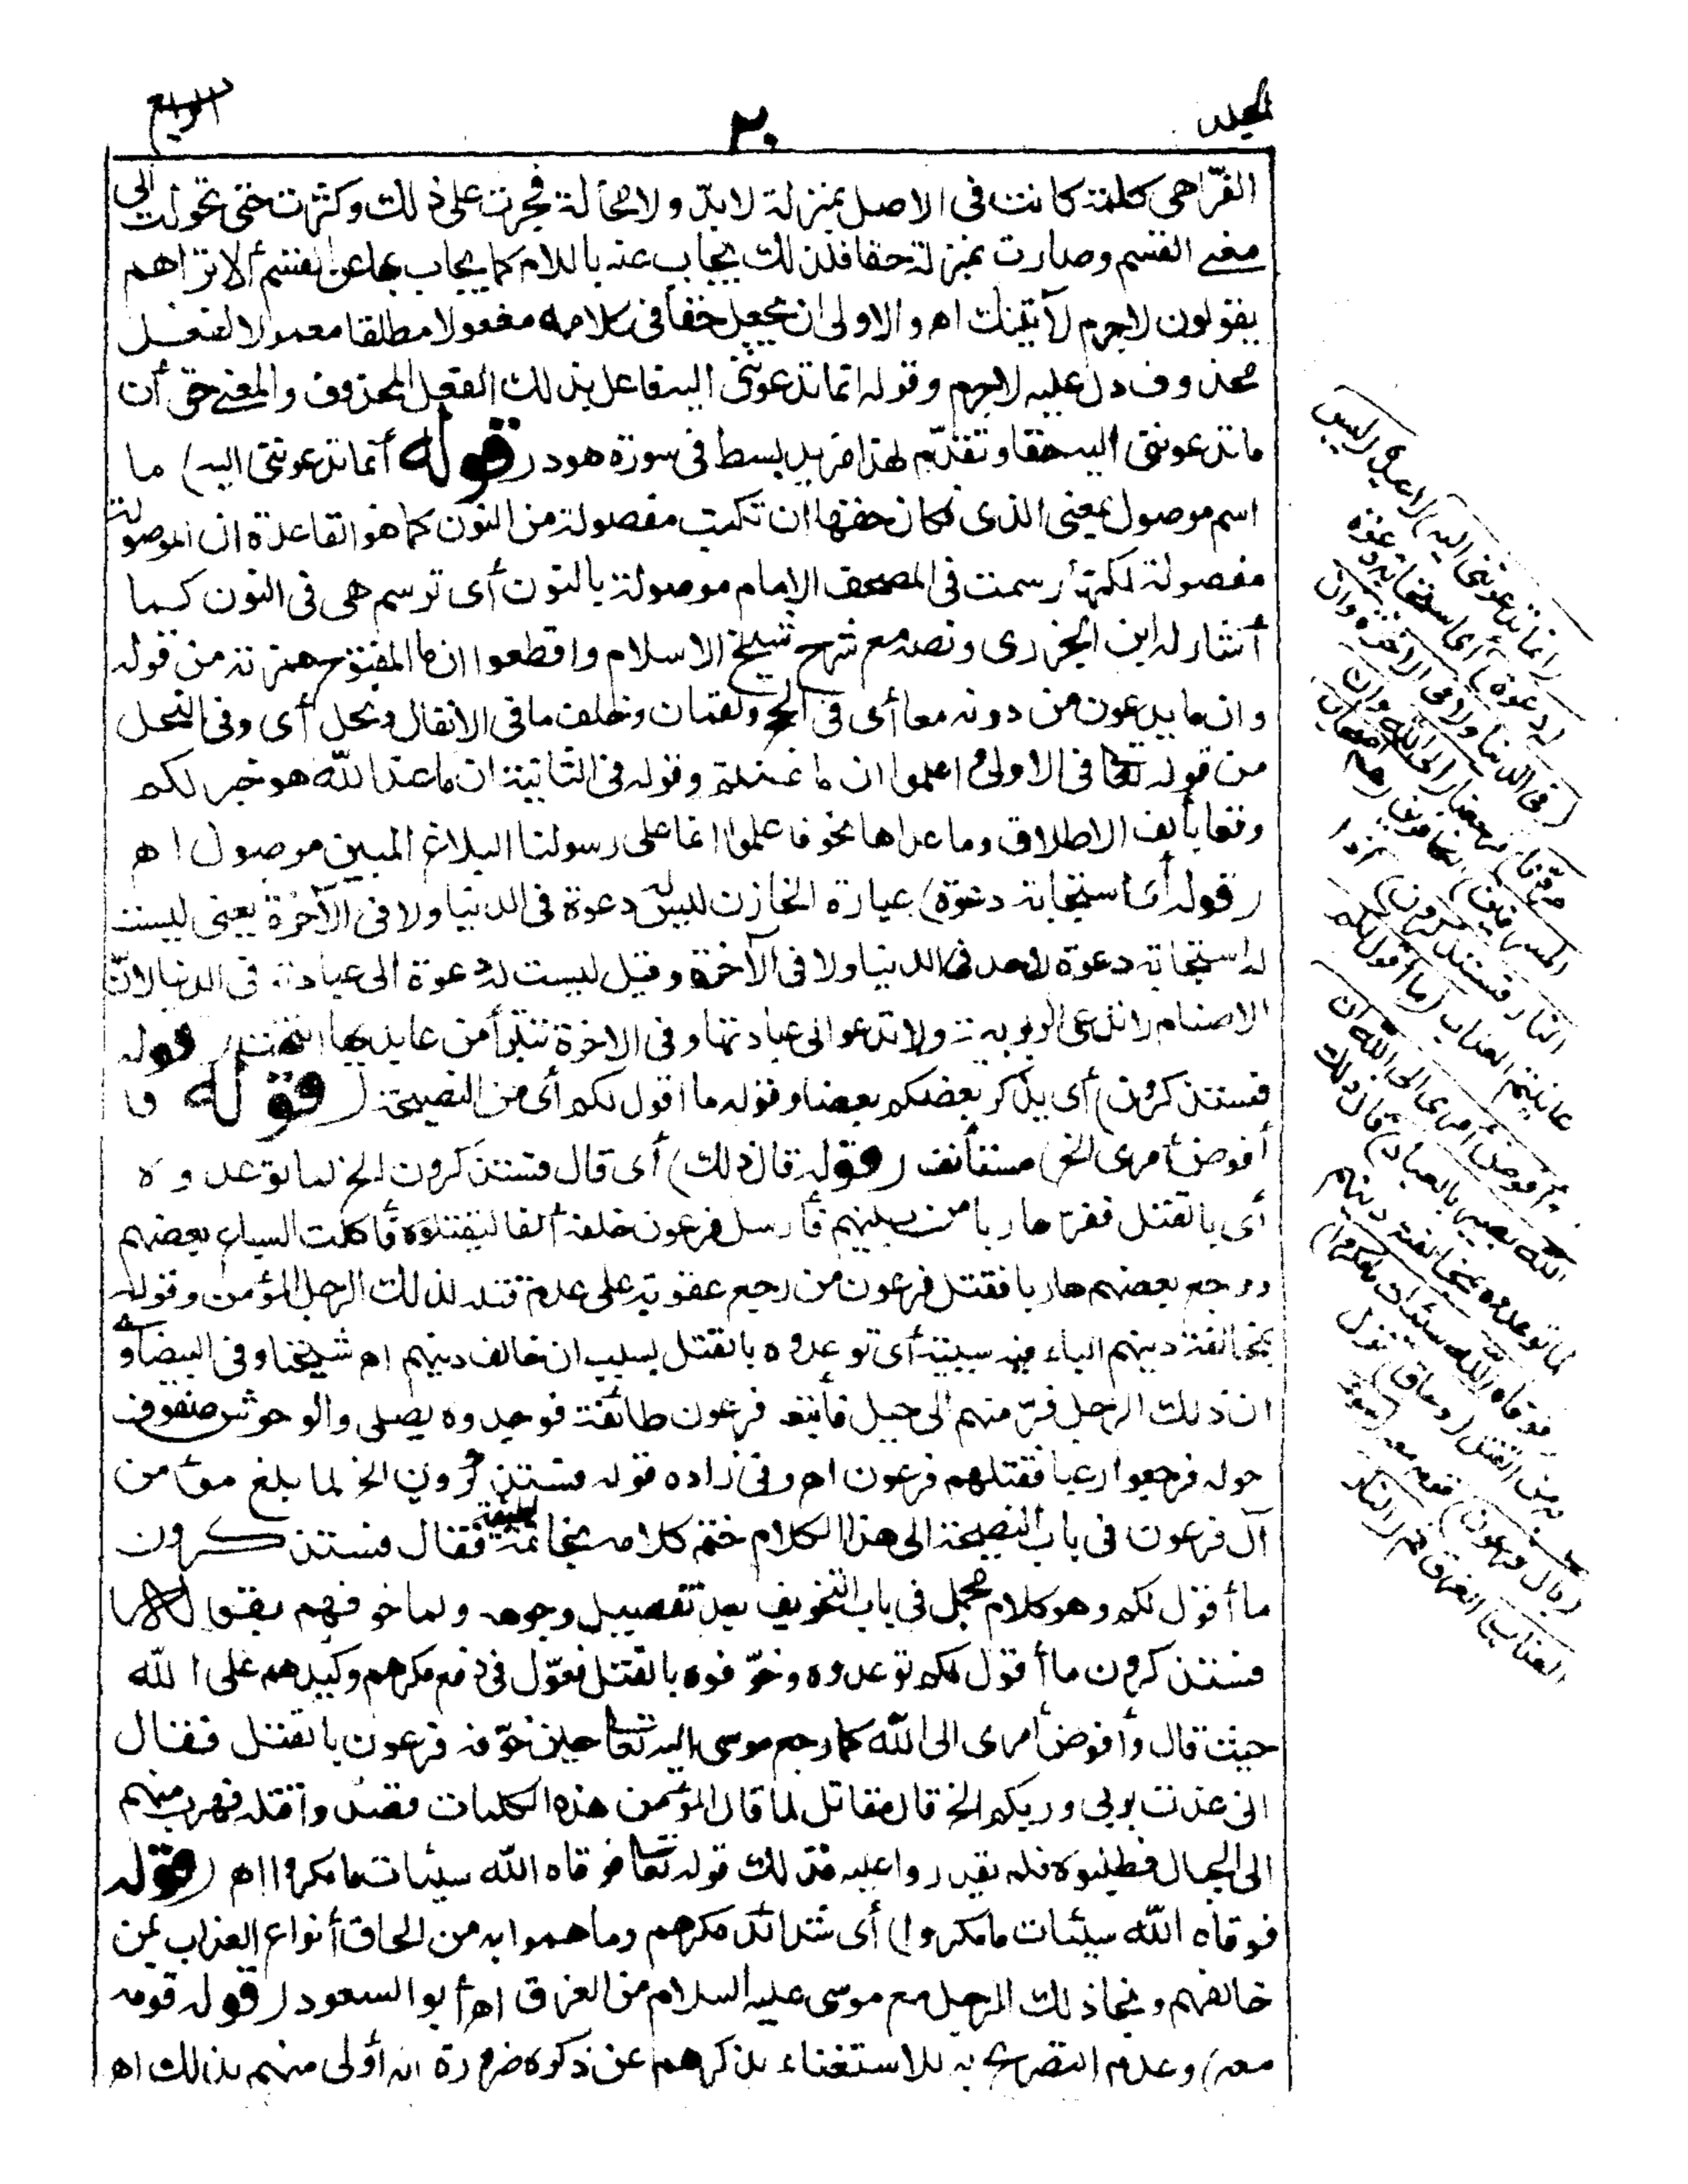 المجلد
٢٠
الرابع
الفرّاهى كلمة كانت فى الاصل بمنزلة لابدّ ولا محالة فجرت على ذلك وكثرت حتى تحولت الى
معنى القسم وصارت بمنزلة حقا فلذلك يجاب عنه باللام كما يجاب بها عن القسم ألا تراهم
يقولون لاجرم لآتينك اه والاولى ان يجعل حقا فى كلامه مفعولا مطلقا معمولا لفعل
محذوف دل عليه لاجرم وقوله انما تدعوننى اليه فاعل بذلك الفعل المحذوف والمعنى حق أن
ما تدعوننى اليه حقا وتقدّم لهذا مزيد بسط فى سورة هود (قوله أنما تدعوننى اليه) ما
اسم موصول بمعنى الذى فكان حقها ان تكتب مفصولة من النون كما هو القاعدة ان الموصولة
مفصولة لكنها رسمت فى المصحف الامام موصولة بالنون أى ترسم هى فى النون كما
أشار له ابن الجزرى ونصه مع شرح شيخ الاسلام واقطعوا ان ما المفتوح همزته من قوله
وان ما يدعون من دونه معا أى فى الحج ولقمان وخلف ما فى الانفال ونحل أى وفى النحل
من قوله تعالى فى الاولى واعلموا ان ما غنمتم وقوله فى الثانية ان ما عند الله هو خير لكم
وقعا بألف الاطلاق وما عداها نحو فاعلموا انما على رسولنا البلاغ المبين موصول اه
(قوله أى استجابة دعوة) عبارة الخازن ليس له دعوة فى الدنيا ولا فى الآخرة يعنى ليست
له استجابة دعوة لاحد فى الدنيا ولا فى الآخرة وقيل ليست له دعوة الى عبادته فى الدنيا لانّ
الاصنام لا تدعى الربوبية ولا تدعو الى عبادتها وفى الآخرة تتبرأ من عابديها انتهت (قوله
فستذكرون) أى يذكر بعضكم بعضا وقوله ما اقول لكم أى من النصيحة (قوله وا
أفوض أمرى الخ) مستأنف (قوله قال ذلك) أى قال فستذكرون الخ لما توعدوه
أى بالقتل ففرّ هاربا من بينهم فأرسل فرعون خلفه ألفا ليقتلوه فأكلت السباع بعضهم
ورجع بعضهم هاربا فقتل فرعون من رجع عقوبة على عدم قتله لذلك الرجل المؤمن وقوله
بمخالفة دينهم الباء فيه سببية أى توعدوه بالقتل بسبب ان خالف دينهم اه شيخنا وفى البيضاوى
ان ذلك الرجل فرّ منهم الى جبل فأتبعه فرعون طائفة فوجدوه يصلى والوحوش صفوف
حوله فرجعوا رعبا فقتلهم فرعون اه وفى زاده قوله فستذكرون الخ لما بلغ مؤمن
آل فرعون فى باب النصيحة الى هذا الكلام ختم كلامه بخاتمة لطيفة فقال فستذكرون
ما أقول لكم وهو كلام مجمل فى باب التخويف بعد تفصيل وجوهه ولما خوفهم بقوله
فستذكرون ما أقول لكم توعدوه وخوّفوه بالقتل فعوّل فى دفع مكرهم وكيدهم على الله
حيث قال وأفوض أمرى الى الله كما رجع موسى اليه تعالى حين خوّفه فرعون بالقتل فقال
انى عذت بربى وربكم الخ قال مقاتل لما قال المؤمن هذه الكلمات قصدوا قتله فهرب منهم
الى الجبال فطلبوه فلم يقدروا عليه فذلك قوله تعالى فوقاه الله سيئات ما مكروا اه (قوله
فوقاه الله سيئات ما مكروا) أى شدائد مكرهم وما هموا به من الحاق أنواع العذاب بمن
خالفهم ونجا ذلك الرجل مع موسى عليه السلام من الغرق اه أبو السعود (قوله قومه
معه) وعدم التصريح به للاستغناء بذكرهم عن ذكره ضرورة انه أولى منهم بذلك اه
(أنما تدعوننى اليه) لاعبده (ليس
له دعوة) أى استجابة دعوة
(فى الدنيا ولا فى الآخرة وان
مردّنا) مرجعنا (الى الله وان
المسرفين) الكافرين (هم أصحاب
النار فستذكرون) اذا
عاينتم العذاب (ما أقول لكم
وأفوض أمرى الى الله ان
الله بصير بالعباد) قال ذلك
لما توعدوه بمخالفة دينهم
(فوقاه الله سيئات ما مكروا)
به من القتل (وحاق) نزل
(بآل فرعون) قومه معه (سوء
العذاب) الغرق ثم (النار